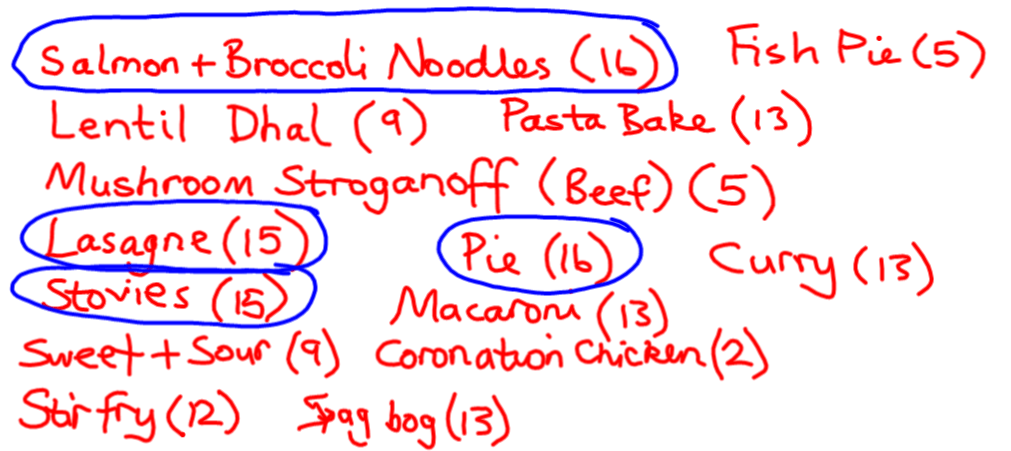 Salmon + Broccoli Noodles (16) Fish Pie (5)
Lentil Dhal (9) Pasta Bake (13)
Mushroom Stroganoff (Beef) (5)
Lasagne (15) Pie (16) Curry (13)
Stovies (15) Macaroni (13)
Sweet + Sour (9) Coronation Chicken (2)
Stir fry (12) Spag bog (13)